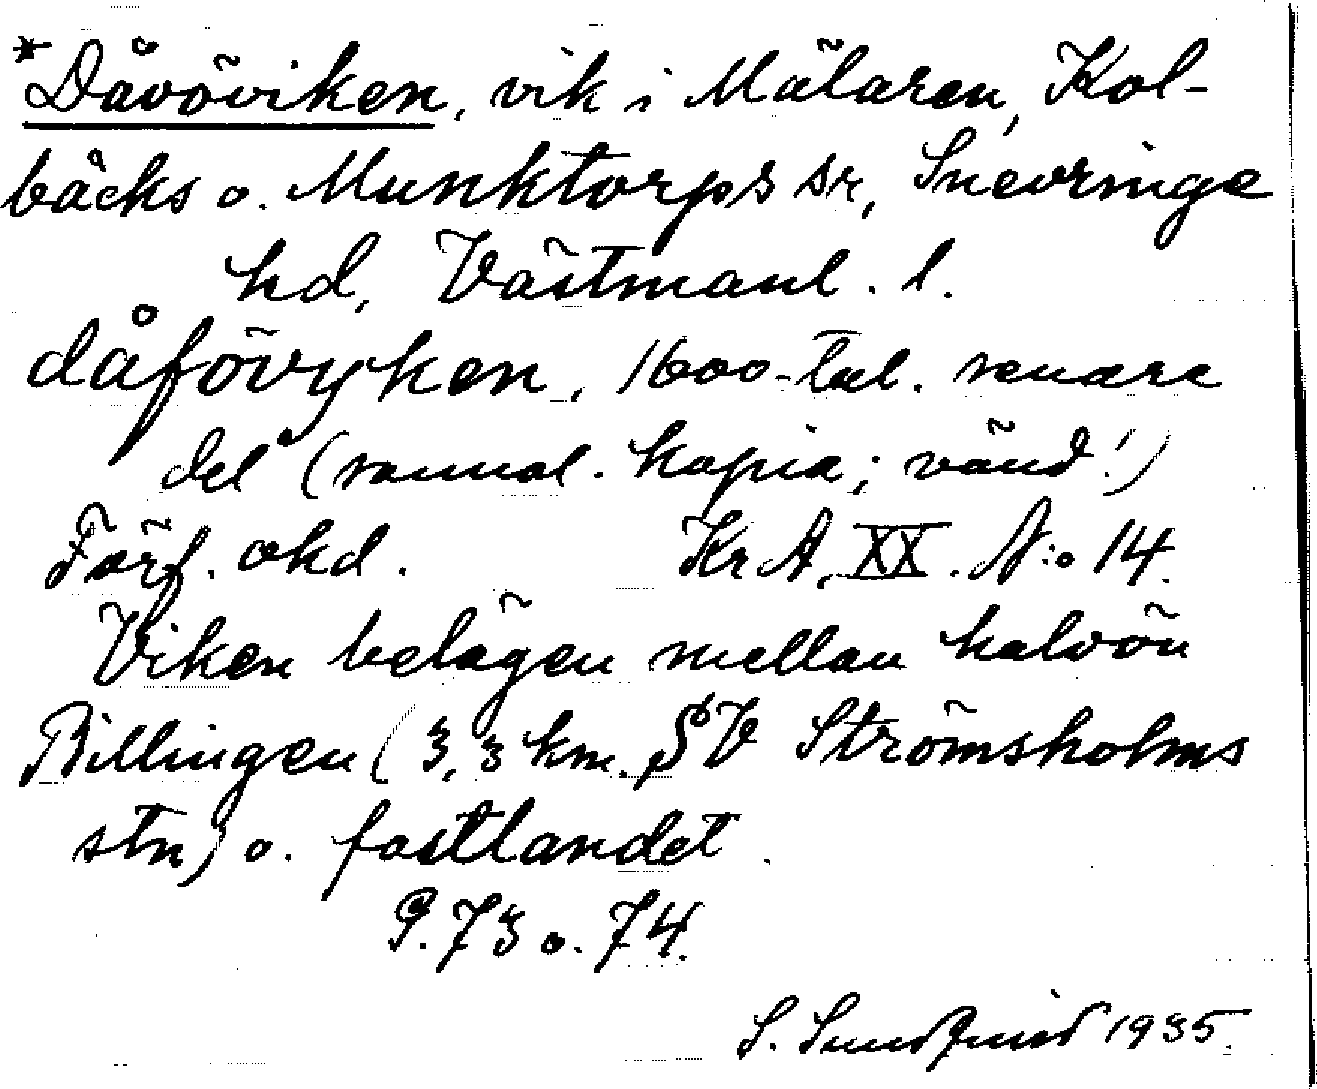 *Dåvöviken, vik i Mälaren, Kol-
bäcks o. Munktorps sr, Snevringe
hd, Västmanl. l.
dåfövyken, 1600-tal. senare
del (samal. kopia; vänd!)
Förf. okd. KrA, XX. N:o 14.
Viken belägen mellan halvön
Billingen (3,3 km. SV Strömsholms
stn) o. fastlandet.
G. 73 o. 74.
S. Sundquist 1935.